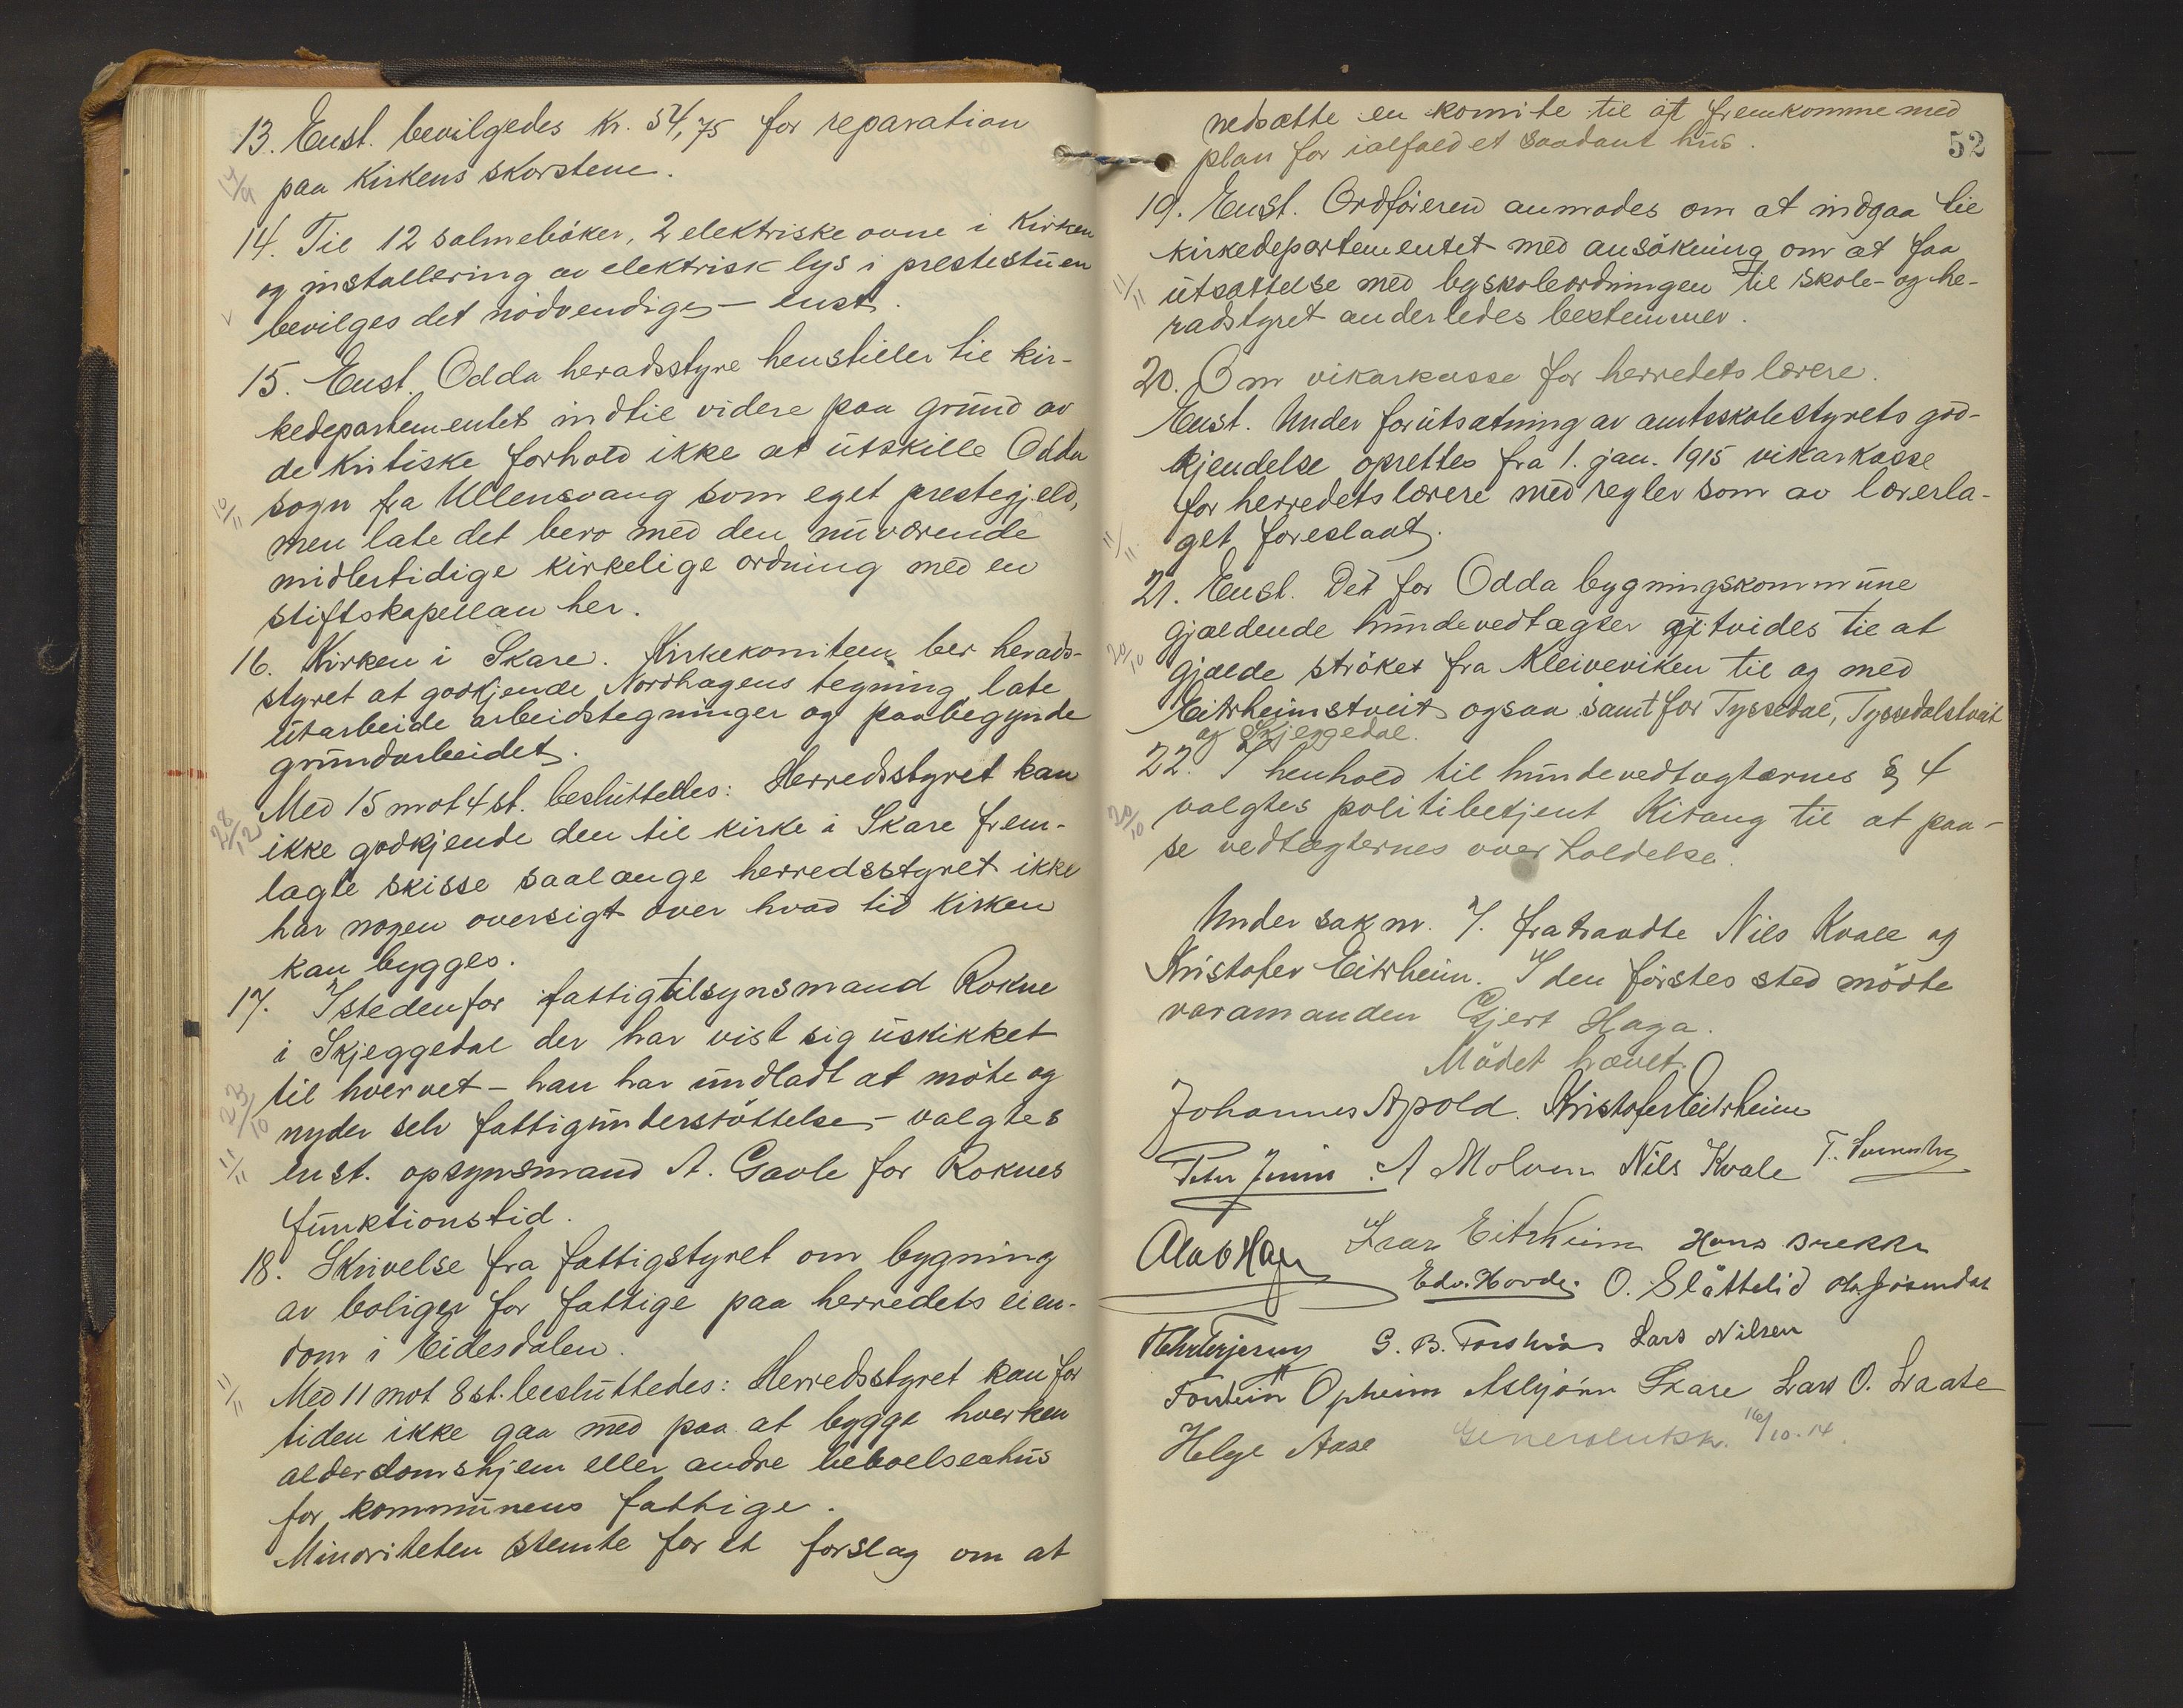 13. Enst. bevilgedes kr. 54,75 for reparation
14/9 paa kirkens skorstene.
14. Til 12 salmebøker, 2 elektriske ovne i kirken
og installering av elektrisk lys i prestestuen
bevilges det nødvendige – enst.
15. Enst. Odda heradsstyre henstiller til kir-
kedepartementet indtil videre paa grund av
de kritiske forhold ikke at utskille Odda
10/11 sogn fra Ullensvang som eget prestegjeld,
men late det bero med den nuværende
midlertidige kirkelige ordning med en
stiftskapellan her.
16. Kirken i Skare. Kirkekomiteen ber herads-
styret at godkjende Nordhagens tegning, late
utarbeide arbeidstegninger og paabegynde
grundarbeidet.
Med 15 mot 4 st. besluttedes: Herredsstyret kan
28/12 ikke godkjende den til kirke i Skare frem-
lagte skisse saalænge herredsstyret ikke
har nogen oversigt over hvad tid kirken
kan bygges.
17. Istedenfor fattigtilsynsmand Rokne
i Skjeggedal der har vist sig uskikket
til hvervet – han har undladt at møte og
23/10 nyder selv fattigunderstøttelse – valgtes
11/11 enst. opsynsmand A. Gavle for Roknes
funktionstid.
18. Skrivelse fra fattigstyret om bygning
av boliger for fattige paa herredets eien-
dom i Eidesdalen.
11/11 Med 11 mot 8 st. besluttedes: Herredsstyret kan for
tiden ikke gaa med paa at bygge hverken
alderdomshjem eller andre beboelseshus
for kommunens fattige.
Minoriteten stemte for et forslag om at
52
nedsætte en komite til at fremkomme med
plan for ialfald et saadant hus.
19. Enst. Ordføreren anmodes om at indgaa til
kirkedepartementet med ansøkning om at faa
11/11 utsættelse med byskoleordningen til skole- og he-
radstyret anderledes bestemmer.
20. Om vikarkasse for herredets lærere.
Enst. Under forutsætning av amtsskolestyrets god-
kjendelse oprettes fra 1. jan. 1915 vikarkasse
for herredets lærere med regler som av lærerla-
11/11 get foreslaat.
21. Enst. Det for Odda bygningskommune
gjældende hundevedtægter utvides til at
20/10 gjælde strøket fra Kleiveviken til og med
Eitrheimstveit ogsaa samt for Tyssedal, Tyssedalstveit
og Skjeggedal.
22. I henhold til hundevedtægternes § 4
20/10 valgtes politibetjent Kitang til at paa-
se vedtægternes overholdelse.
Under sak nr. 7. fratraadte Nils Kvale og
Kristofer Eitrheim. I den førstes sted møtte
varamanden Gjert Haga.
Mødet hævet.
Johannes Apold. Kristofer Eitrheim
A Molven Nils Kvale
Olav Haga Eitrheim Hans Brekke
Edv. Hovde. O. Slåttelid
G. B. Lars Nilsen
Torstein Opheim Asbjørn Skare Lars O.
Helge Aase Generalutskr. 16/10.14.